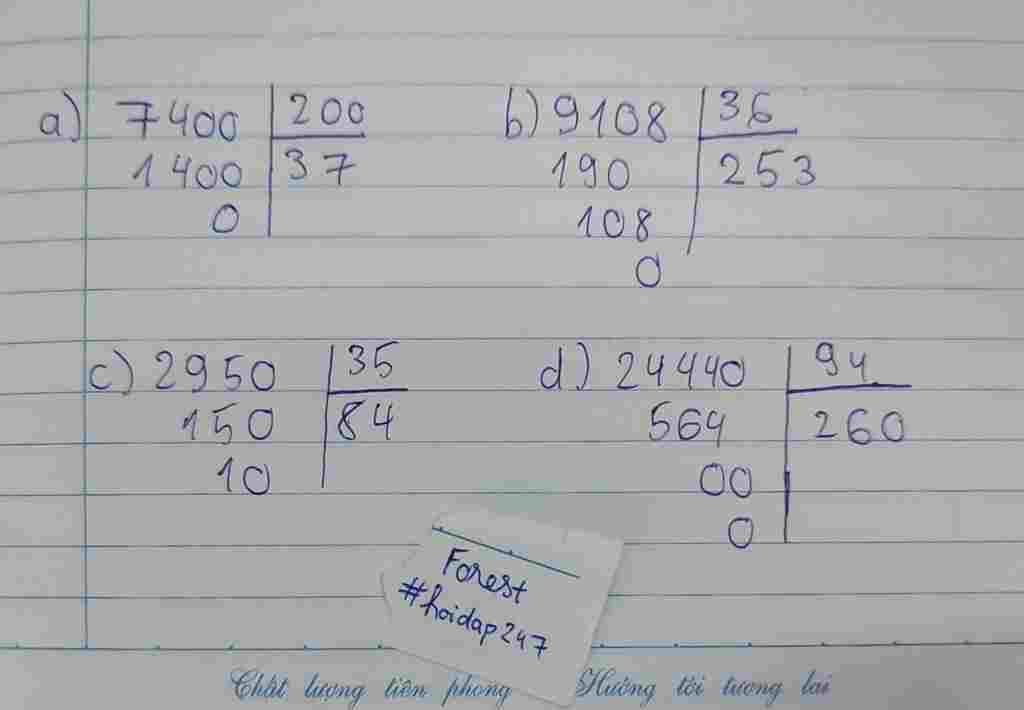 a) 7400 | 200
1400 | 37
0
b) 9108 | 36
190 | 253
108
0
c) 2950 | 35
150 | 84
10
d) 24440 | 94
564 | 260
00
0
Forest
#hoidap247
Chất lượng tiên phong Hướng tới tương lai